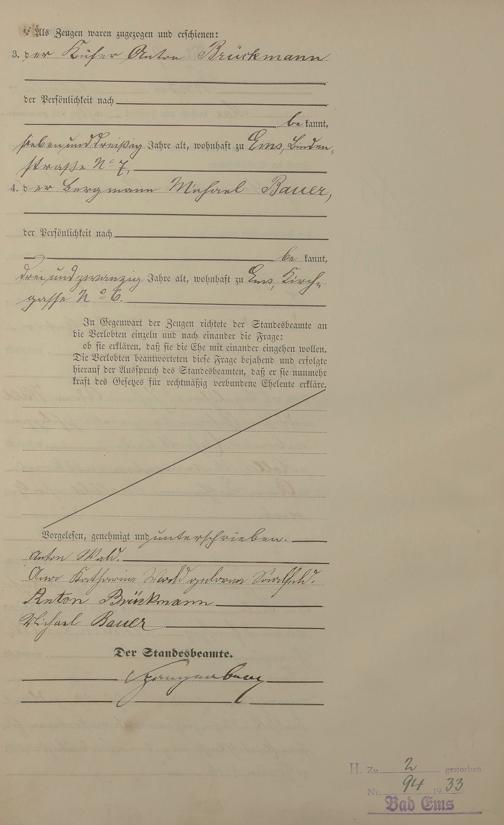 Als Zeugen waren zugezogen und erschienen:
3. der Küfer Anton Brückmann
der Persönlichkeit nach
be kannt,
siebenunddreißig Jahre alt, wohnhaft zu Ems, Linden-
straße No 7,
4. der Bergmann Michael Bauer,
der Persönlichkeit nach
be kannt,
dreiundzwanzig Jahre alt, wohnhaft zu Ems, Kirch-
gasse No 6.
In Gegenwart der Zeugen richtete der Standesbeamte an
die Verlobten einzeln und nach einander die Frage:
ob sie erklären, daß sie die Ehe mit einander eingehen wollen.
Die Verlobten beantworteten diese Frage bejahend und erfolgte
hierauf der Ausspruch des Standesbeamten, daß er sie nunmehr
kraft des Gesetzes für rechtmäßig verbundene Eheleute erkläre.
Vorgelesen, genehmigt und unterschrieben.
Anton Wald.
Katharina Wald geborene
Anton Brückmann
Michael Bauer
Der Standesbeamte.
H. Zu 2 gestorben
Nr. 94 19 33
Bad Ems